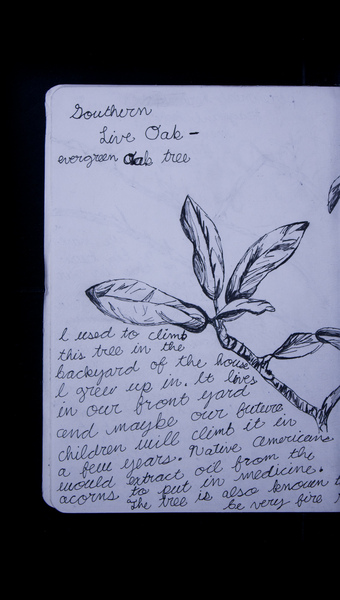 Southern
Live Oak -
evergreen oak tree
I used to climb
this tree in the
backyard of the house
I grew up in. It lives
in our front yard
and maybe our future
children will climb it in
a few years. Native Americans
would extract oil from the
acorns to put in medicine.
The tree is also known t
be very fire